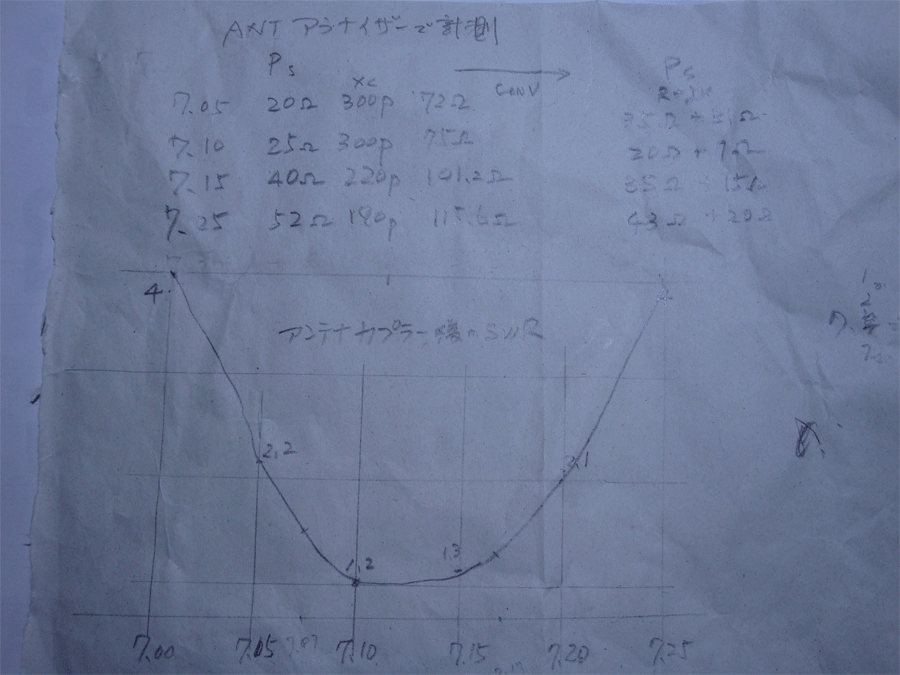 ANT アナライザーで計測
Ps XC → CONV Ps
7.05 20Ω 300p 72Ω
7.10 25Ω 300p 75Ω 20Ω + 9Ω
7.15 40Ω 220p 101.2Ω 35Ω + 15Ω
7.25 52Ω 190p 115.6Ω 43Ω + 29Ω
4.
アンテナカプラー SWR
2,2
2,1
1,2
1,3
7.00 7.05 7.07 7.10 7.15 7.20 7.25